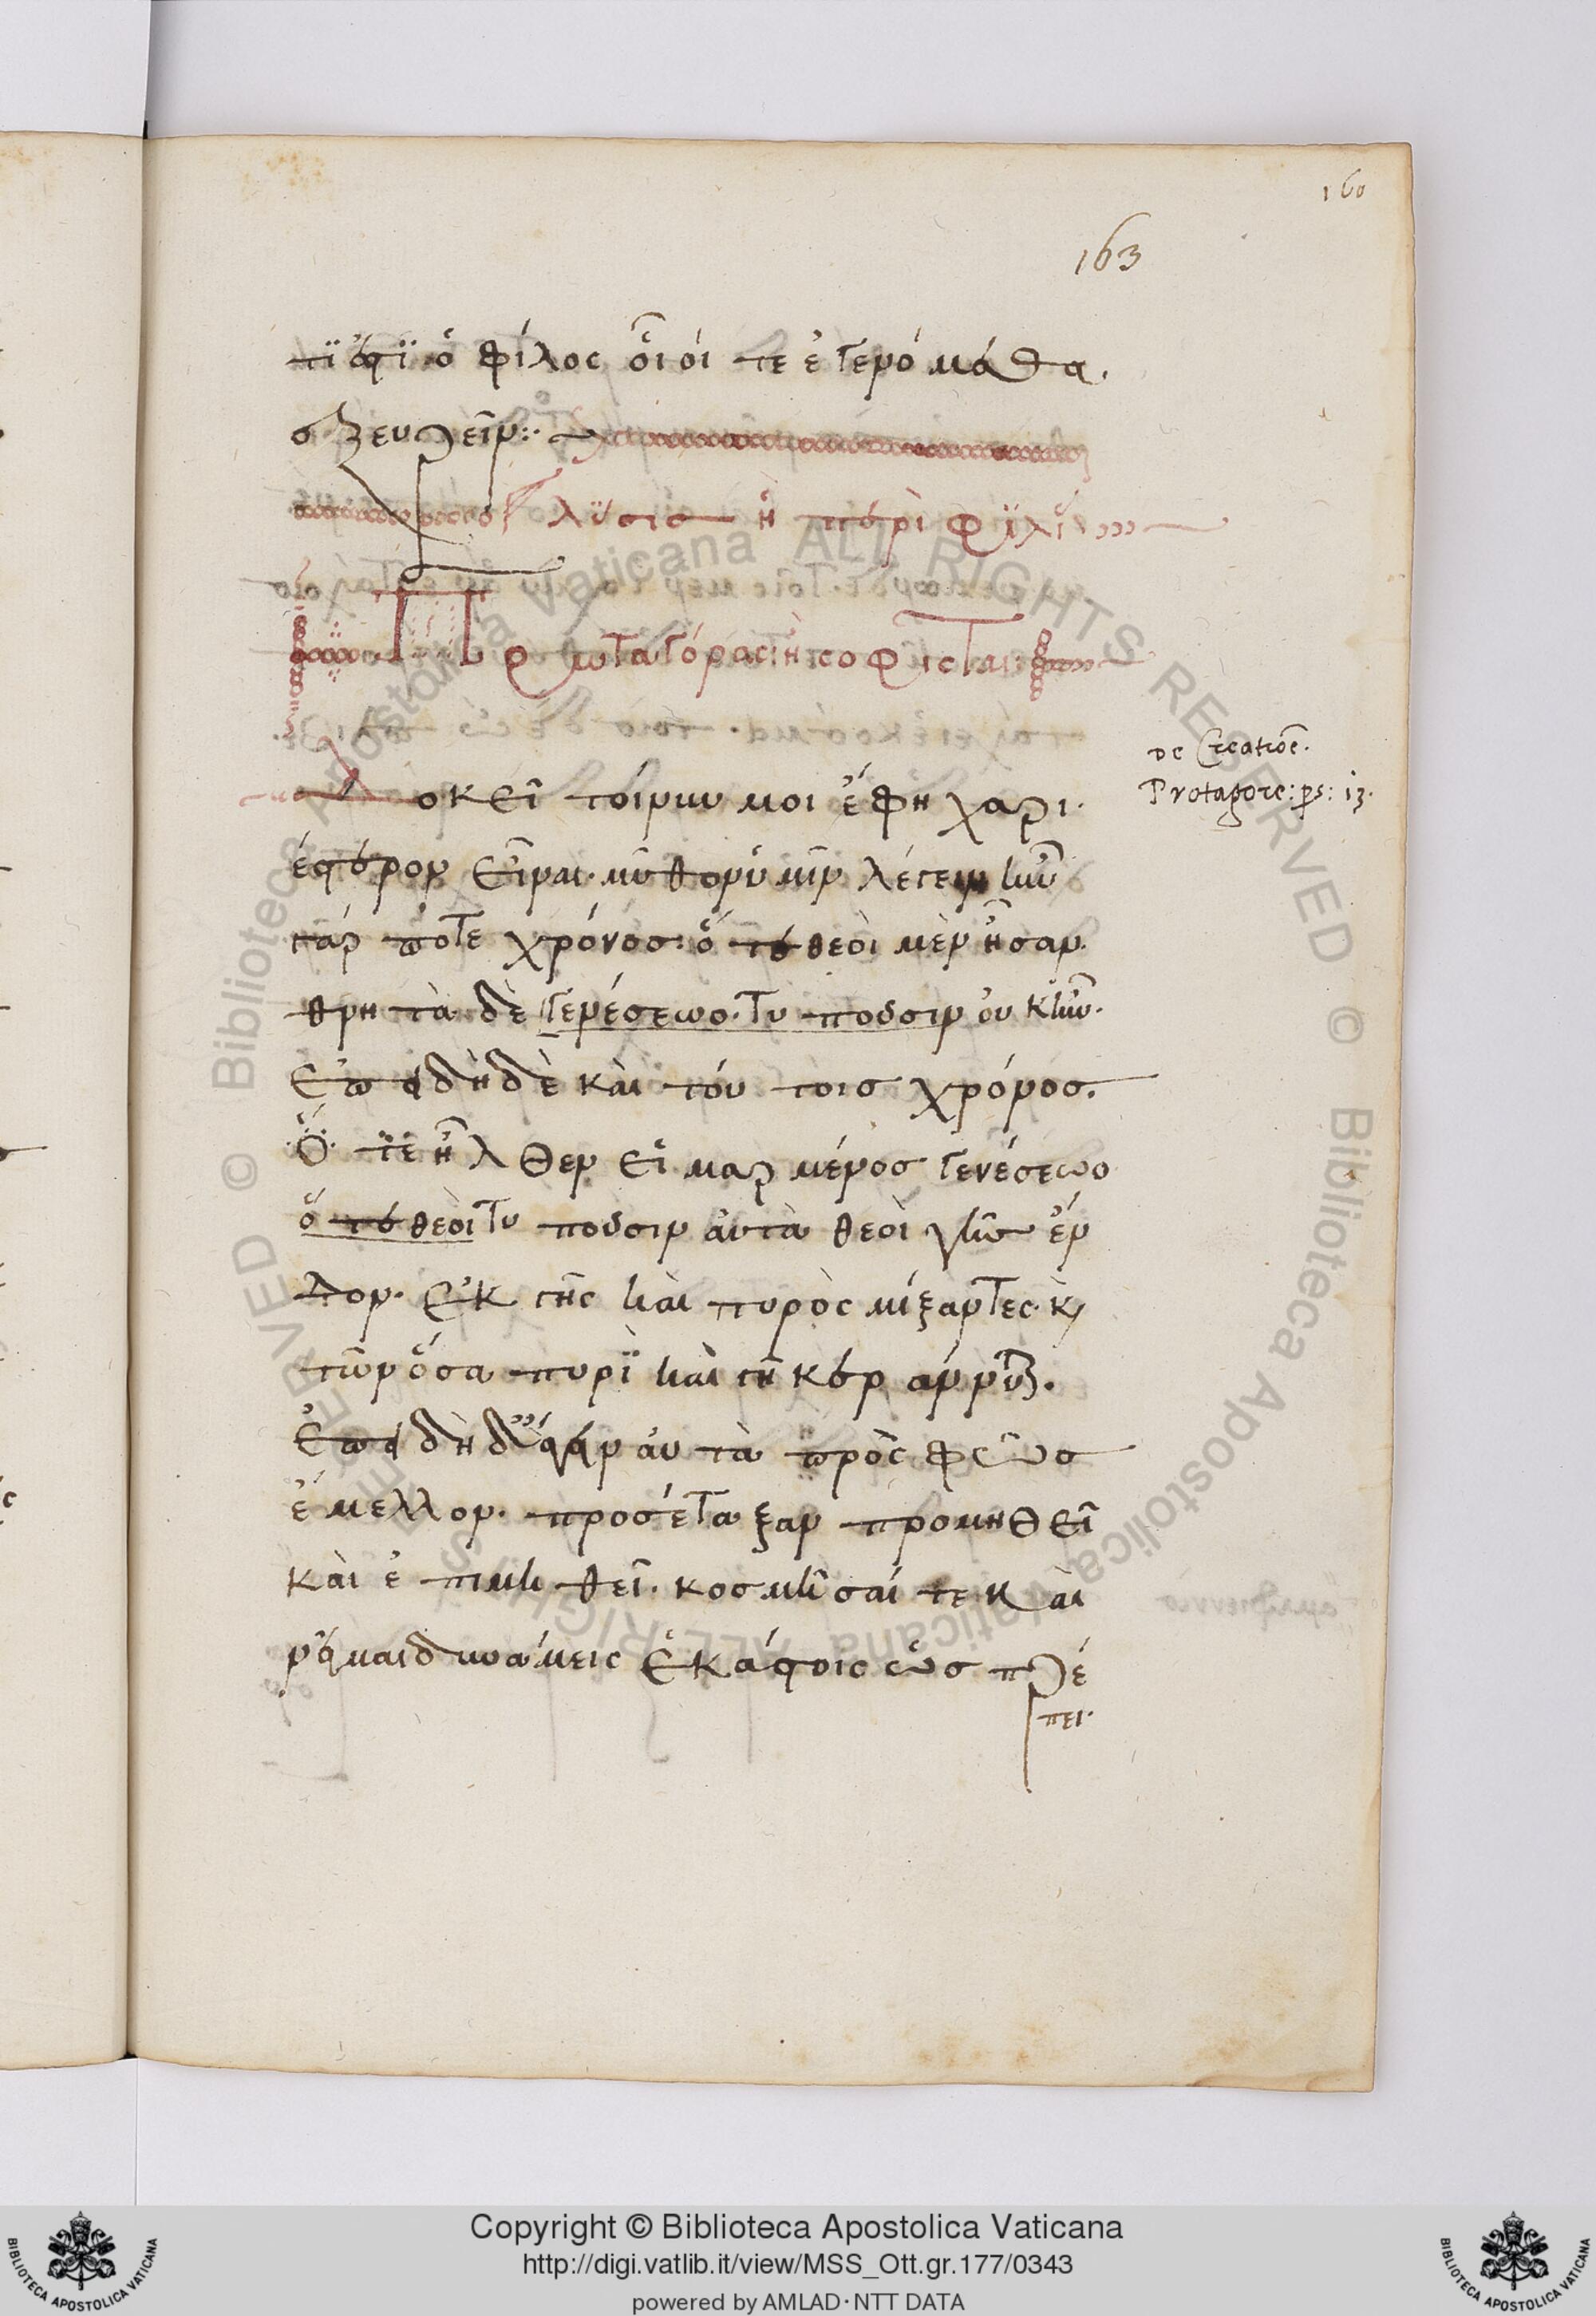 160
163
τί ἐστὶ ὁ φίλος οἷοί τε ἐγενόμεθα
ἐξευρεῖν:
λύσις ἢ περὶ φιλί
Πρωταγόρας ἢ σοφισταί
Δοκεῖ τοίνυν μοι ἔφη χαρι
έστερον εἶναι· μῦθον ὑμῖν λέγειν ἦν
γάρ ποτε χρόνος· ὅτε θεοὶ μὲν ἦσαν.
θνητὰ δὲ γενέσεως. Τυποῦσιν οὐκ ἦν.
Ἐπειδὴ δὲ καὶ τού τοις χρόνος.
Ὅ τε ἦλθεν εἱμαρμένος γενέσεως
ὅτε θεοὶ Τυποῦσιν αὐτὰ θεοὶ γῆς ἔν
δον. Ἐκ γῆς καὶ πυρὸς μίξαντες· κὶ
τῶν ὅσα πυρὶ καὶ γῆ κεράννυται.
Ἐπειδὴ δ' ἄγειν αὐτὰ πρὸς φῶς
ἔμελλον. προσέταξαν προμηθεῖ
καὶ ἐπιμηθεῖ. κοσμῆσαί τε καὶ
νεῖμαι δυνάμεις ἑκάστοις ὡς πρέ
πει.
De Creatioē.
Protagore: ps: 13.
© Biblioteca Apostolica Vaticana ALL RIGHTS RESERVED © Biblioteca Apostolica Vaticana ALL RIGHTS RESERVED
Copyright © Biblioteca Apostolica Vaticana
http://digi.vatlib.it/view/MSS_Ott.gr.177/0343
powered by AMLAD·NTT DATA
BIBLIOTECA APOSTOLICA VATICANA
BIBLIOTECA APOSTOLICA VATICANA